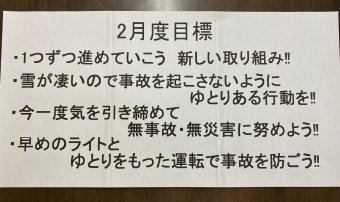 2月度目標
・1つずつ進めていこう 新しい取り組み!!
・雪が凄いので事故を起こさないように
ゆとりある行動を!!
・今一度気を引き締めて
無事故・無災害に努めよう!!
・早めのライトと
ゆとりをもった運転で事故を防ごう!!